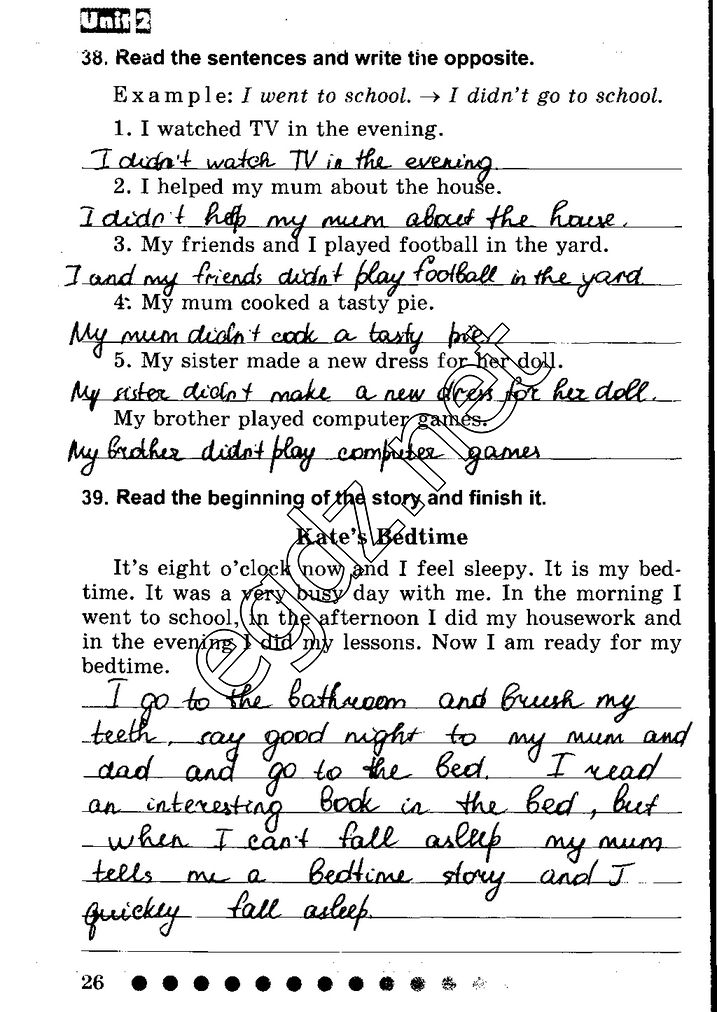 Unit 2
38. Read the sentences and write the opposite.
Example: I went to school. → I didn't go to school.
1. I watched TV in the evening.
I didn't watch TV in the evening.
2. I helped my mum about the house.
I didn't help my mum about the house.
3. My friends and I played football in the yard.
I and my friends didn't play football in the yard
4. My mum cooked a tasty pie.
My mum didn't cook a tasty pie.
5. My sister made a new dress for her doll.
My sister didn't make a new dress for her doll.
My brother played computer games.
My brother didn't play computer games
39. Read the beginning of the story and finish it.
Kate's Bedtime
It's eight o'clock now and I feel sleepy. It is my bed-
time. It was a very busy day with me. In the morning I
went to school, in the afternoon I did my housework and
in the evening I did my lessons. Now I am ready for my
bedtime.
I go to the bathroom and brush my
teeth, say good night to my mum and
dad and go to the bed. I read
an interesting book in the bed, but
when I can't fall asleep my mum
tells me a bedtime story and I
quickly fall asleep.
26
egdz.net